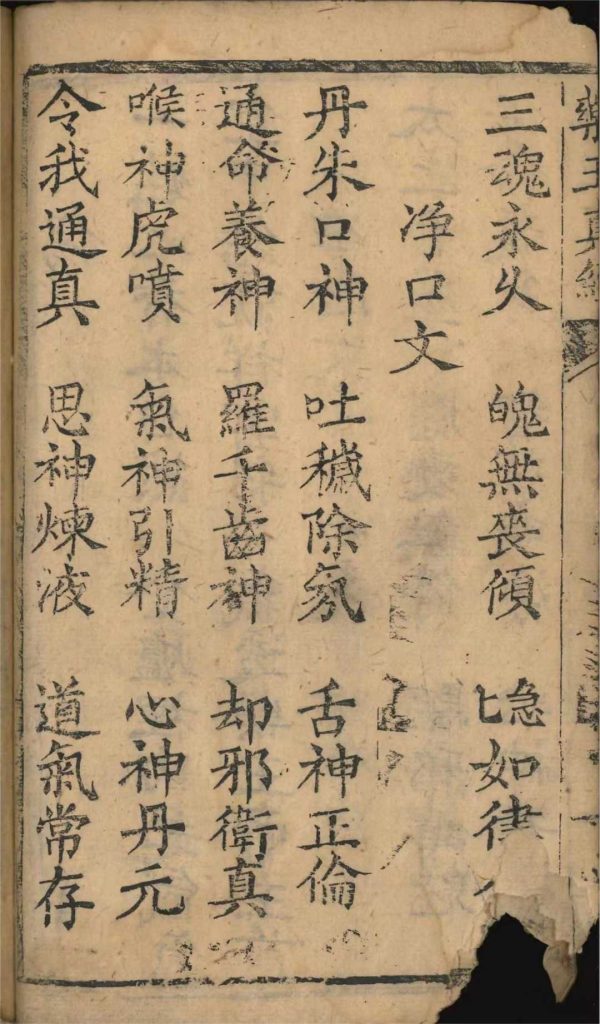 藥王真經
三魂永久　魄無丧傾　急如律
净口文
丹朱口神　吐穢除氛　舌神正倫
通命養神　羅千齒神　却邪衛真
喉神虎噴　氣神引精　心神丹元
令我通真　思神煉液　道氣常存